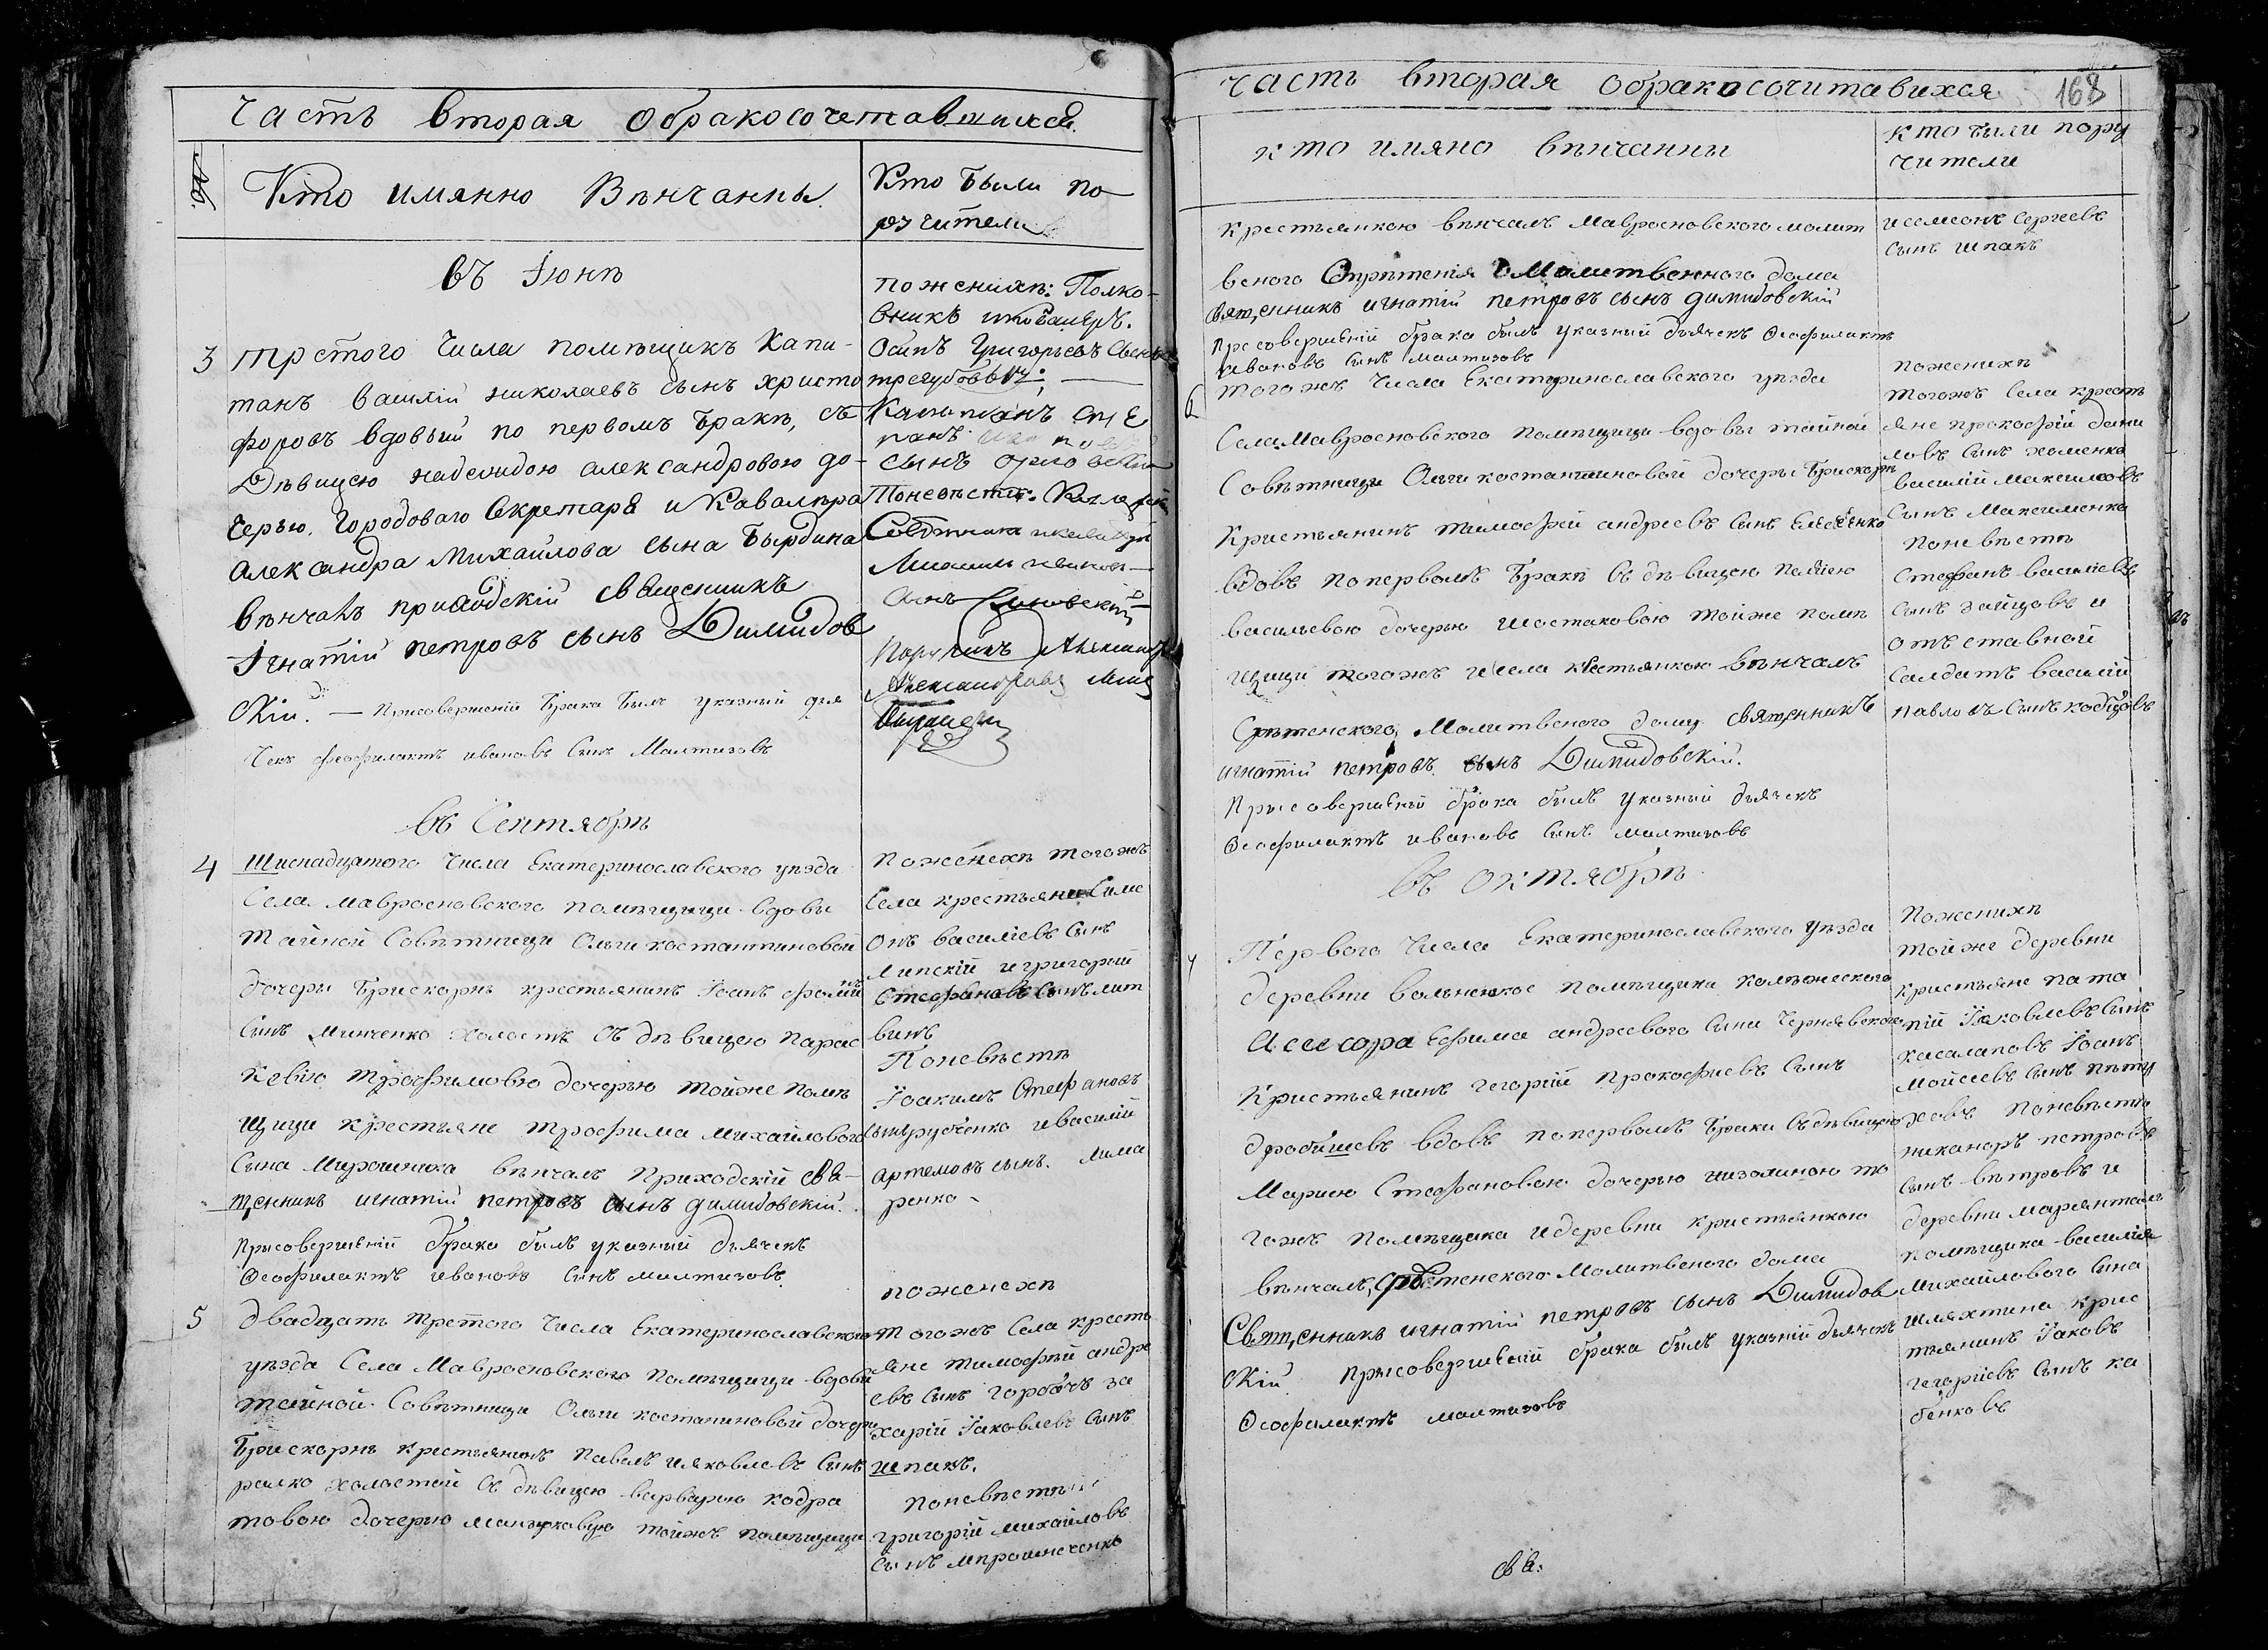 Часть вторая обракосочетавшихся.
№
Кто имянно Вѣнчанны.
Кто были по
ручители
въ Іюнѣ
3 третого числа помѣщикъ Капи-
танъ василій николаевъ сынъ христо
форовъ вдовый по первомъ бракѣ, съ
Дѣвицею надеждою александровою до-
черью, Городоваго Секретаря и Кавалѣра
Александра Михайлова сына Бырдина
вѣнчалъ приходскій священникъ
Ігнатій петровъ сынъ Димидов
скій. — Присовершеніи брака былъ указный дья
чекъ феофилактъ ивановъ сынъ Малтизовъ
по женихѣ: Полко-
вникъ икавалеръ.
Осипъ Григорьевъ сынъ
трегубовъ;
Капитанъ сте
панъ
сынъ орловскій
Поневѣстѣ:
Совѣтникъ
сынъ
Поручикъ Александръ
Александровъ сынъ
въ Сентябрѣ
4 Шиснадцатого числа Екатеринославского уѣзда
Села мавросновского помѣщици вдовы
тайной Совѣтници Ольги костантиновой
дочеры Брискорнъ крестьянинъ Іоанъ фомин
сынъ Минченко холостъ съ дѣвицею парас
кевію трофимовою дочерью тойже помѣ
щици крестьяне трофима михайлового
сына Мирошника вѣнчалъ приходскій свя-
щенникъ игнатій петровъ сынъ димидовскій.
Присовершеніи брака былъ указный дьячекъ
Феофилактъ ивановъ сынъ малтизовъ
По женехѣ тогожъ
Села крестьяни Симе
онъ василіевъ сынъ
липскій игригорий
Стефановъ сынъ лит
винъ
Поневѣстѣ
Іоакимъ Стефановъ
сынъ рубченко ивасилій
артемовъ сынъ. лима
ренко
5 двадцать третого числа Екатеринославского
уѣзда Села Мавросновского помѣщици вдовы
тайной Совѣтници Ольги костаниновой дочери
Брискорнъ крестьянинъ павелъ ияковлевъ сынъ
ралко холостой съ дѣвицею варварою кодра
товою дочерью манжуковую тойжъ помѣщици
поженехѣ
тогожъ Села кресть
яне тимофѣй андре
евъ сынъ горбачъ за
харій Іаковлевъ сынъ
шпакъ.
поневѣстѣ
григорій михайловъ
сынъ мирошнеченко
часть вторая обракосочитавихся 168
кто имяно вѣнчанны
кто были пору
чители
крестьянкою вѣнчалъ мавросновского молит
веного Стрѣтенія Молитвенного дома
священникъ игнатій петровъ сынъ димидовскій
Присовершеній брака былъ указный дьячекъ Феофилактъ
ивановъ сынъ малтизовъ
и семеонъ сергѣевъ
сынъ шпакъ
6 тогожъ числа Екатеринославского уѣзда
Села Мавросновского помѣщици вдовы тайной
Совѣтници Ольги костантиновой дочеры Брискорнъ
Кристьянинъ тимофей андреевъ сынъ Елесеенко
вдовъ поперволѣ бракѣ съ дѣвицею
васильевою дочерью шостаковою тойже помѣ
щици тогожъ исела крестьянкою вѣнчалъ
Срѣтенского Молитвеного дому священникъ
игнатій петровъ сынъ Димидовскій.
Присовершеній брака былъ указный дьячекъ
Феофилактъ ивановъ сынъ малтизовъ
поженихѣ
тогожъ села кресть
яне прокофій дани
ловъ сынъ хоменко
василій максимовъ
сынъ Максименко
поневѣстѣ
Стефанъ василіевъ
сынъ зайцовъ и
отъставной
салдатъ василій
павловъ сынъ кобцовъ
въ октябрѣ
7 Первого числа Екатеринославского уѣзда
деревни вольненкое помѣщика колѣжеского
Асессора Ефима андреевого сина чернявского
Кристьянинъ Гегоргій прокофиевъ сынъ
дробишевъ вдовъ поперволѣ браки съ дѣвицею
Мариею Стефановою дочерью низолиною то
гожъ помѣщика идеревни кристьянкою
вѣнчалъ, срѣтенского Молитвеного дома
Священникъ игнатій петровъ сынъ Димидов
скій Присовершеній брака былъ указній дьячекъ
Феофилактъ малтизовъ
Поженихѣ
тойже деревни
кристьяне пата
пій Іаковлевъ сынъ
касалаповъ Іоанъ
мойсеевъ сынъ пѣту
ховъ поневѣстѣ
никаноръ петровъ
сынъ вѣтровъ и
деревни марянталъ
помѣщика василия
михайлового сина
шляхтина крис
тьянинъ Іаковъ
гегоргіевъ сынъ ка
бенковъ